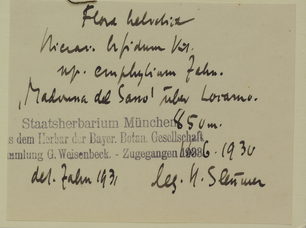 Flora helvetica
Hierac. bifidum Kit.
ssp. Zahn.
„Madonna del Sasso" über Locarno.
Staatsherbarium München
850 m.
s dem Herbar der Bayer. Botan. Gesellschaft
mmlung G. Weisenbeck. - Zugegangen
6. 1930
det. Zahn 1931 leg.